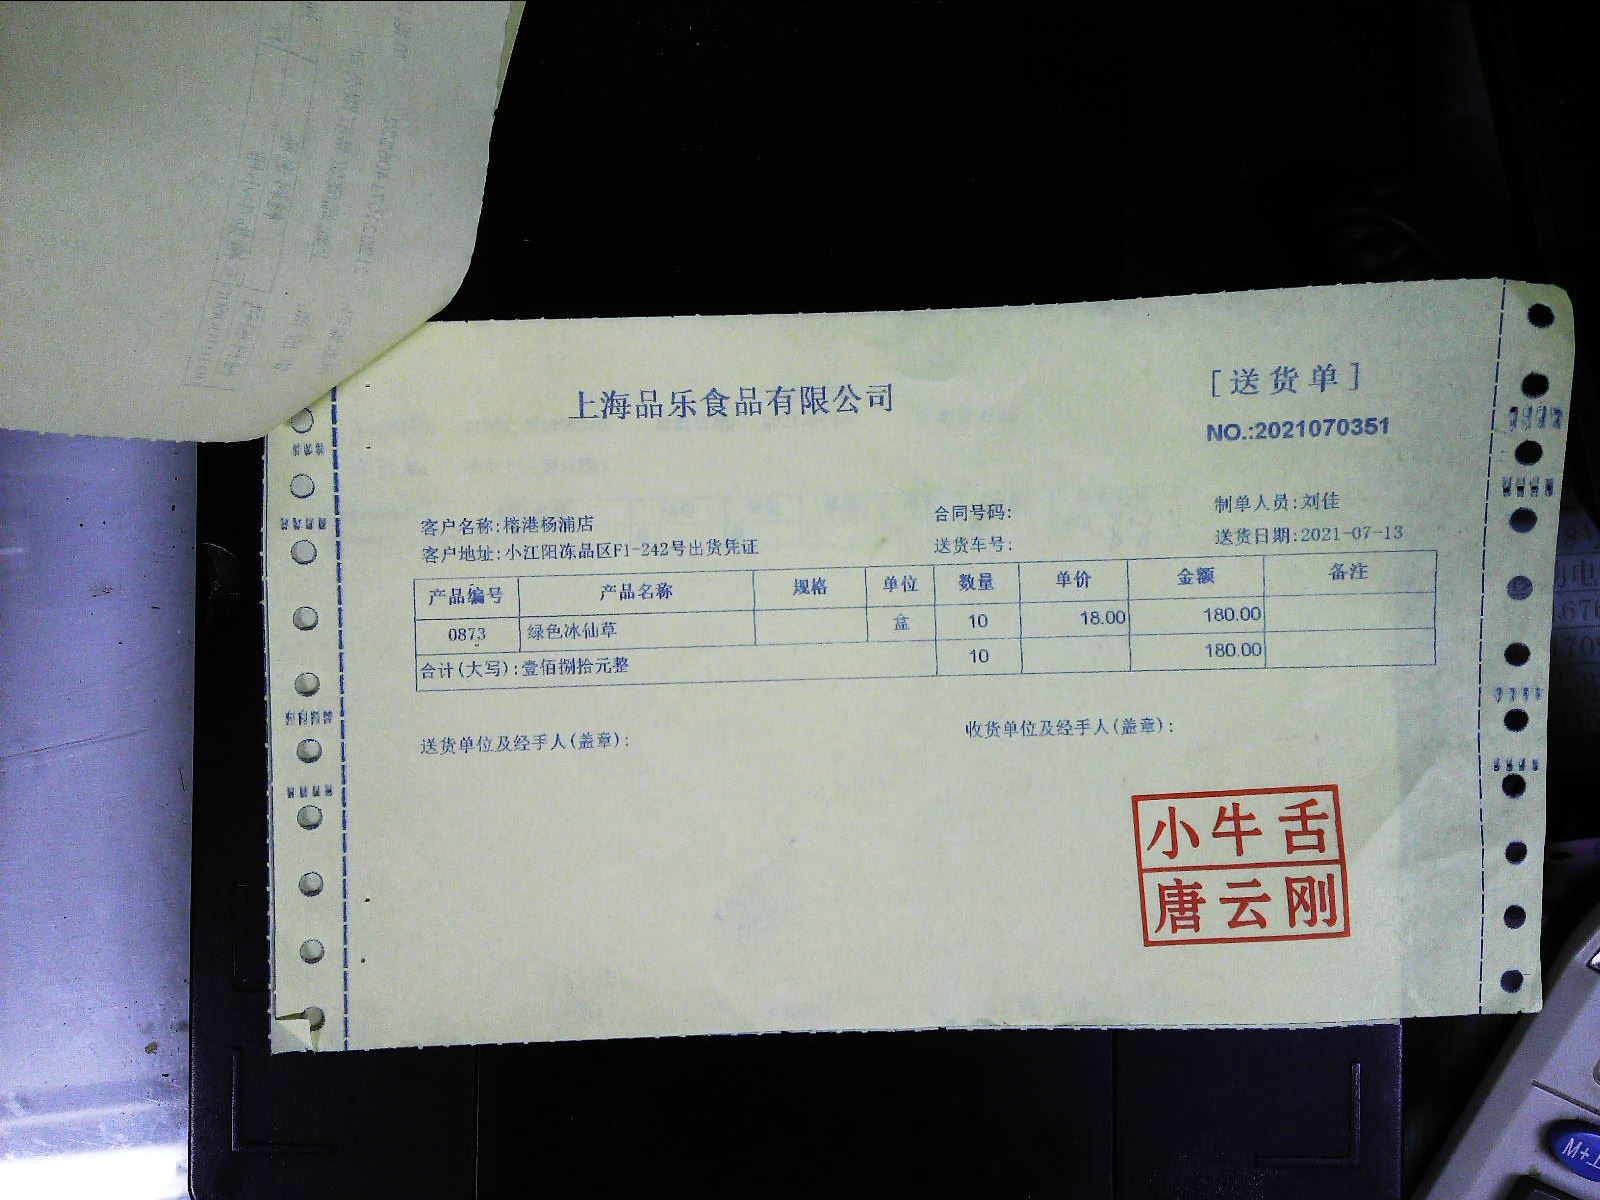 上海品乐食品有限公司
[送货单]
NO.:2021070351
客户名称:榕港杨浦店
合同号码:
制单人员:刘佳
客户地址:小江阳冻品区F1-242号出货凭证
送货车号:
送货日期:2021-07-13
产品编号 产品名称 规格 单位 数量 单价 金额 备注
0873 绿色冰仙草 盒 10 18.00 180.00
合计(大写):壹佰捌拾元整 10 180.00
送货单位及经手人(盖章):
收货单位及经手人(盖章):
小牛舌
唐云刚
M+